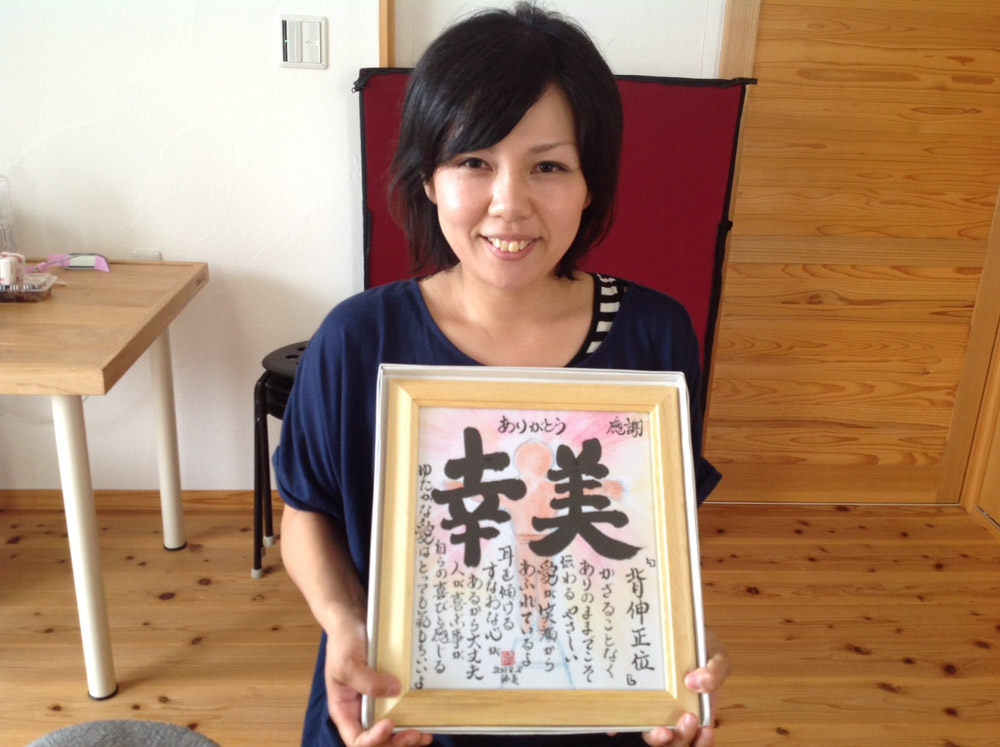 ありがとう 感謝
美幸
『背伸正位』
かざることなく
ありのままでこそ
伝わるやさしい
愛が笑顔から
あふれているよ
耳を傾ける
すなおな心が
あるから大丈夫
人が喜ぶ事が
自らの喜びと感じる
ゆたかな愛はとっても気もちいいよ